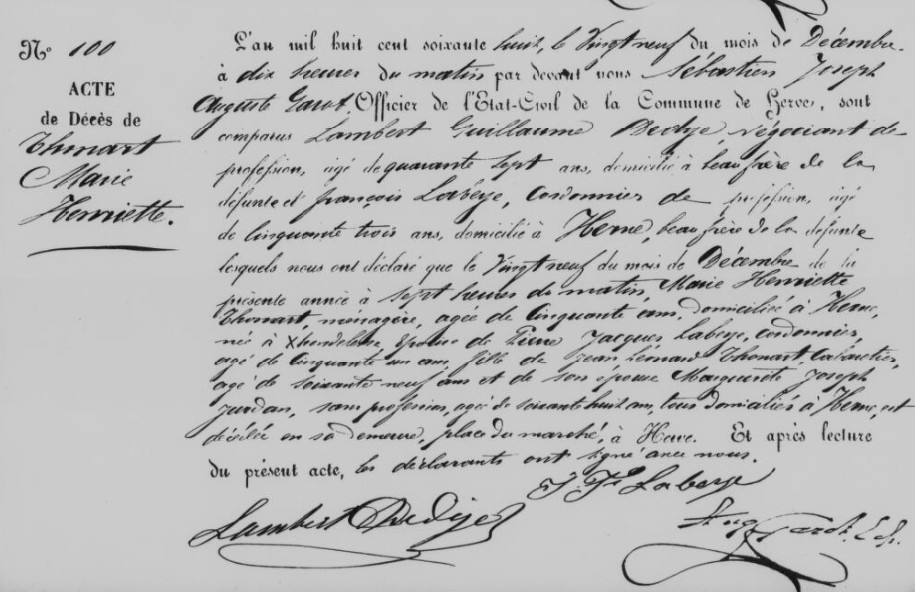 N° 100
ACTE
de Décès de
Thonart
Marie
Henriette.
L'an mil huit cent soixante huit, le Vingt neuf du mois de Décembre
à dix heures du matin par devant nous Sébastien Joseph
Auguste Garot, Officier de l'Etat-Civil de la Commune de Herve, sont
comparus Lambert Guillaume négociant de
profession, âgé de quarante sept ans, domicilié à beau frère de la
défunte et françois Labeye, Cordonnier de profession, âgé
de Cinquante trois ans, domicilié à Herve, beau frère de la défunte
lesquels nous ont déclaré que le Vingt neuf du mois de Décembre de la
présente année à sept heures du matin, Marie Henriette
Thonart, ménagère, agée de Cinquante ans, domiciliée à Herve,
née à Xhendelesse épouse de Pierre Jacques Labeye, Cordonnier,
agé de Cinquante un ans, fille de Jean Léonard Thonart, Cabaretier,
agé de soixante neuf ans et de son épouse Marguerite Joseph
Jurdan, sans profession, agée de soixante huit ans, tous domiciliés à Herve, est
décédée en sa demeure, place du marché, à Herve. Et après lecture
du présent acte, les déclarants ont signé avec nous.
Labeye
Lambert
Garot